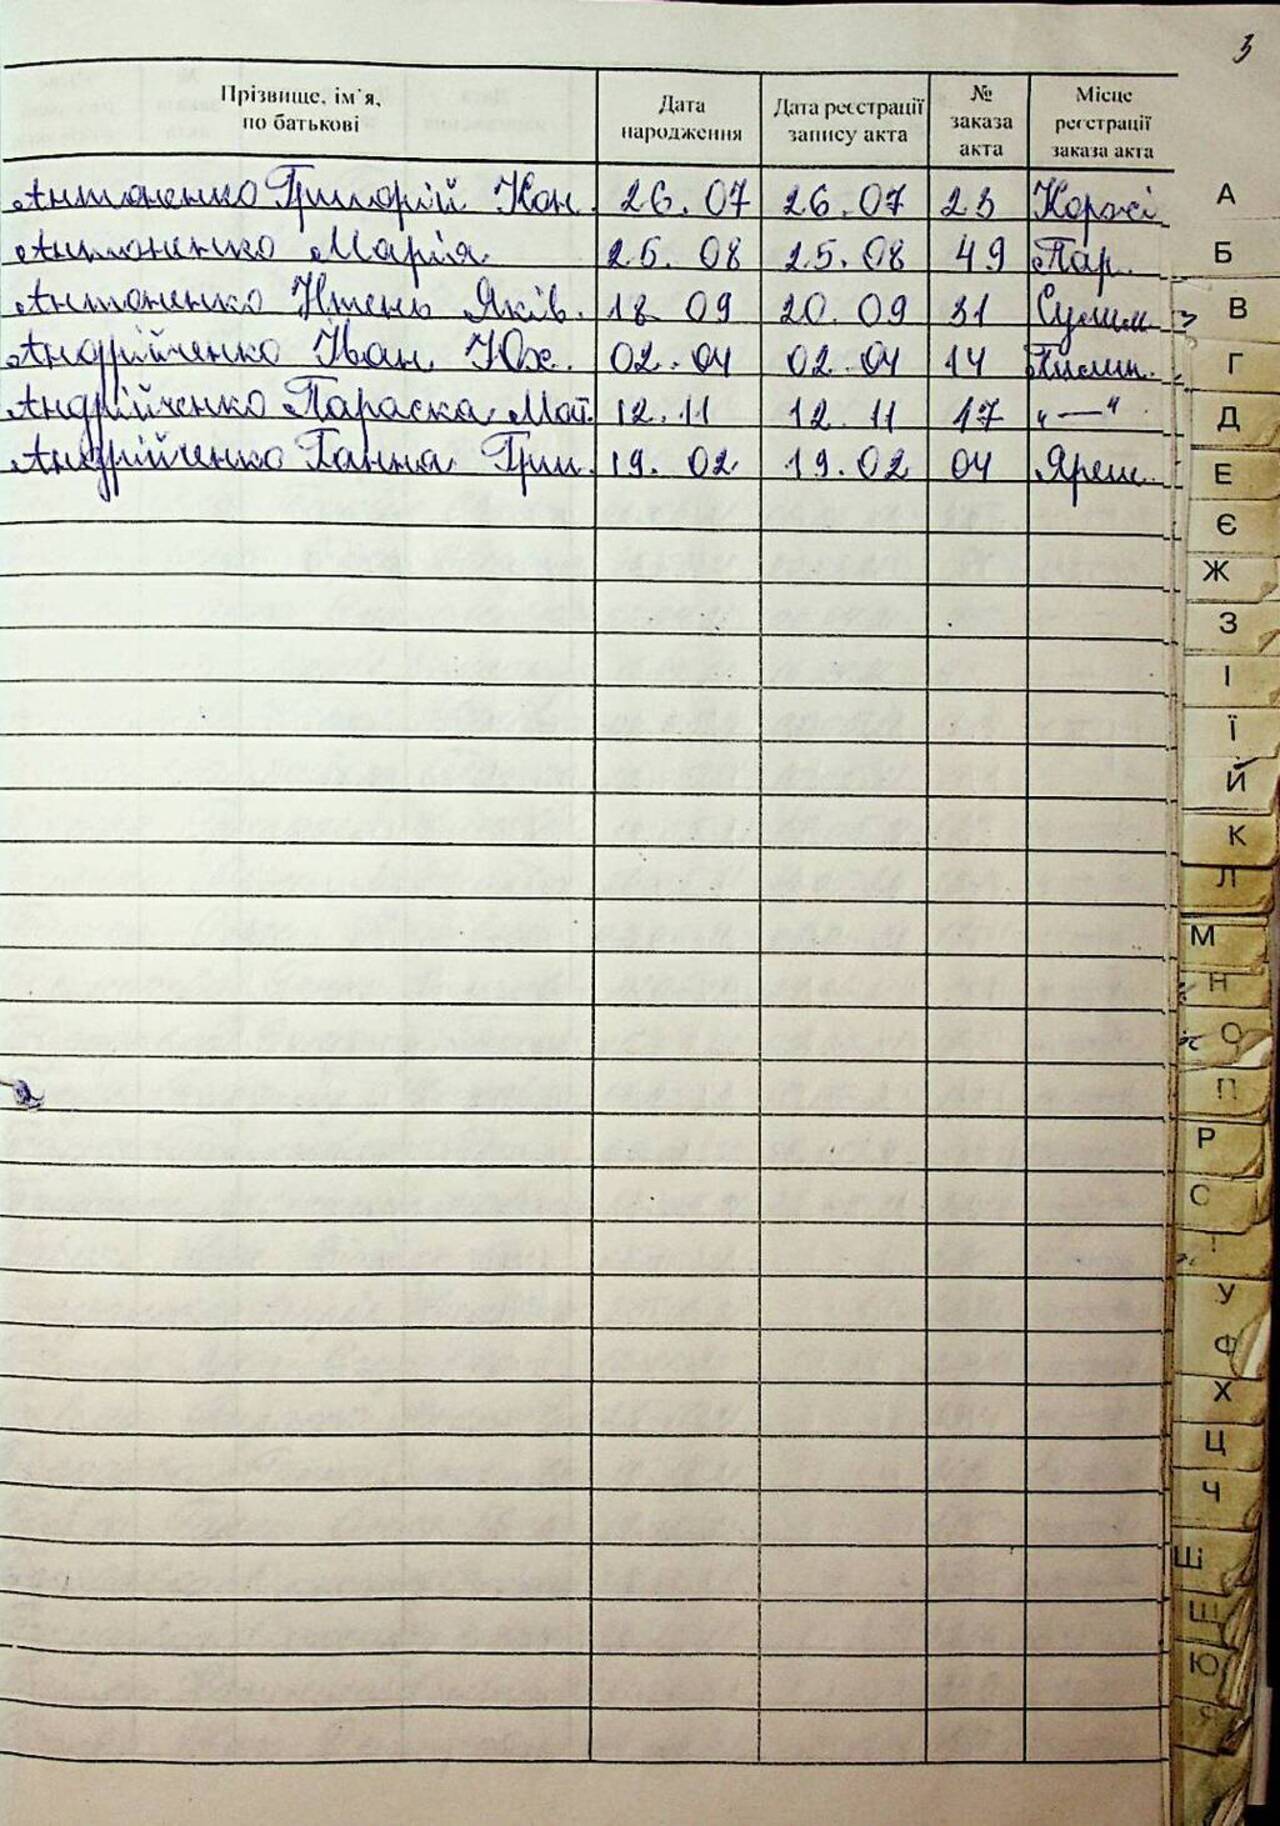 3
Прізвище, ім'я, по батькові Дата народження Дата реєстрації запису акта № заказа акта Місце реєстрації заказа акта
Антоненко Григорій Кон. 26.07 26.07 23 Коржі
Антоненко Марія 25.08 25.08 49 Пар.
Антоненко Яків. 18 09 20.09 31 Сулим
Андрійченко Іван Юх. 02.04 02.04 14
Андрійченко Параска Мат. 12.11 12.11 17 „—"
Андрійченко Ганна Григ. 19.02 19.02 04 Яреш.
А
Б
В
Г
Д
Е
Є
Ж
З
І
Ї
Й
К
Л
М
Н
О
П
Р
С
У
Ф
Х
Ц
Ч
Ш
Щ
Ю